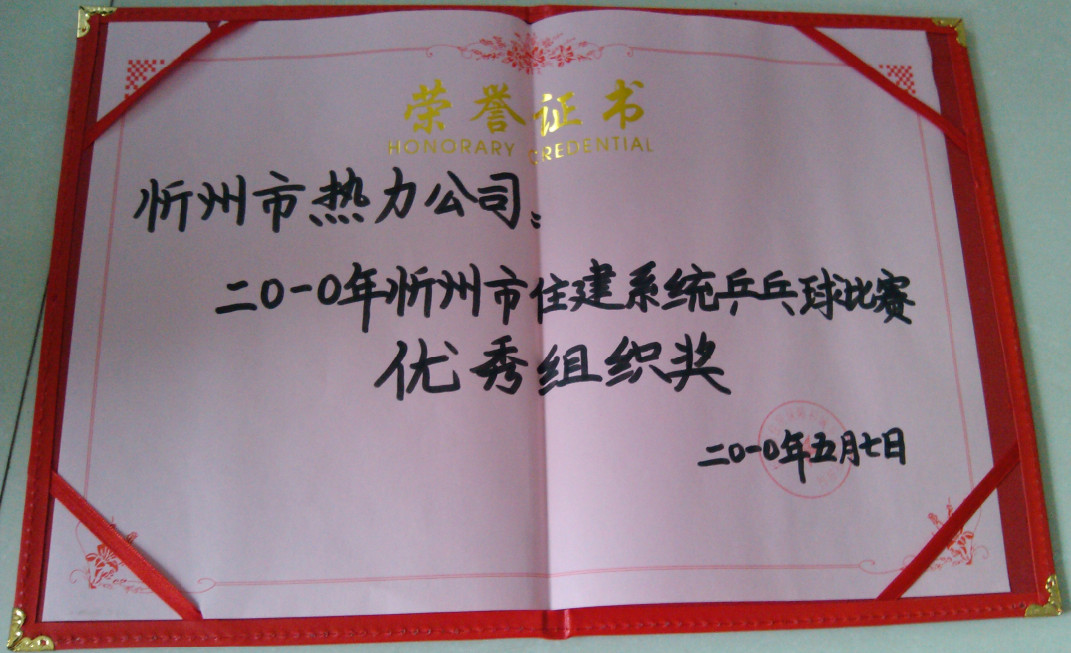 荣誉证书
HONORARY CREDENTIAL
忻州市热力公司：
二〇一〇年忻州市住建系统乒乓球比赛
优秀组织奖
二〇一〇年五月七日